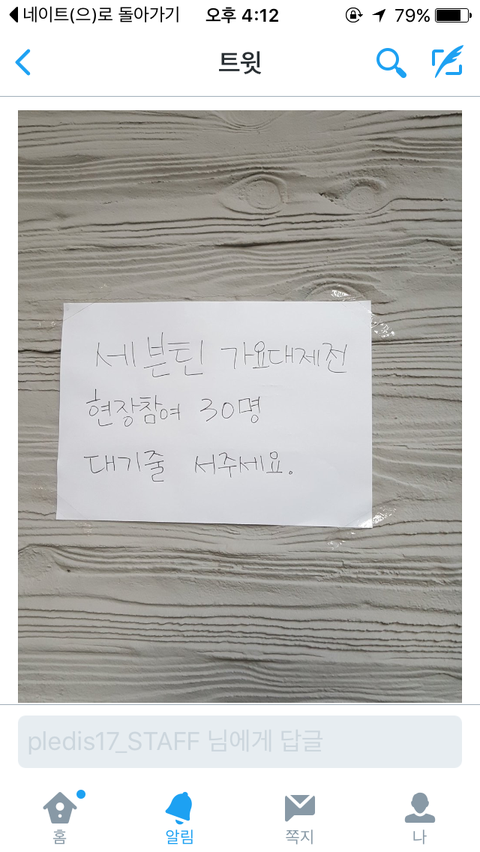 네이트(으)로 돌아가기 오후 4:12 79%
트윗
세븐틴 가요대제전
현장참여 30명
대기줄 서주세요.
pledis17_STAFF 님에게 답글
홈 알림 쪽지 나